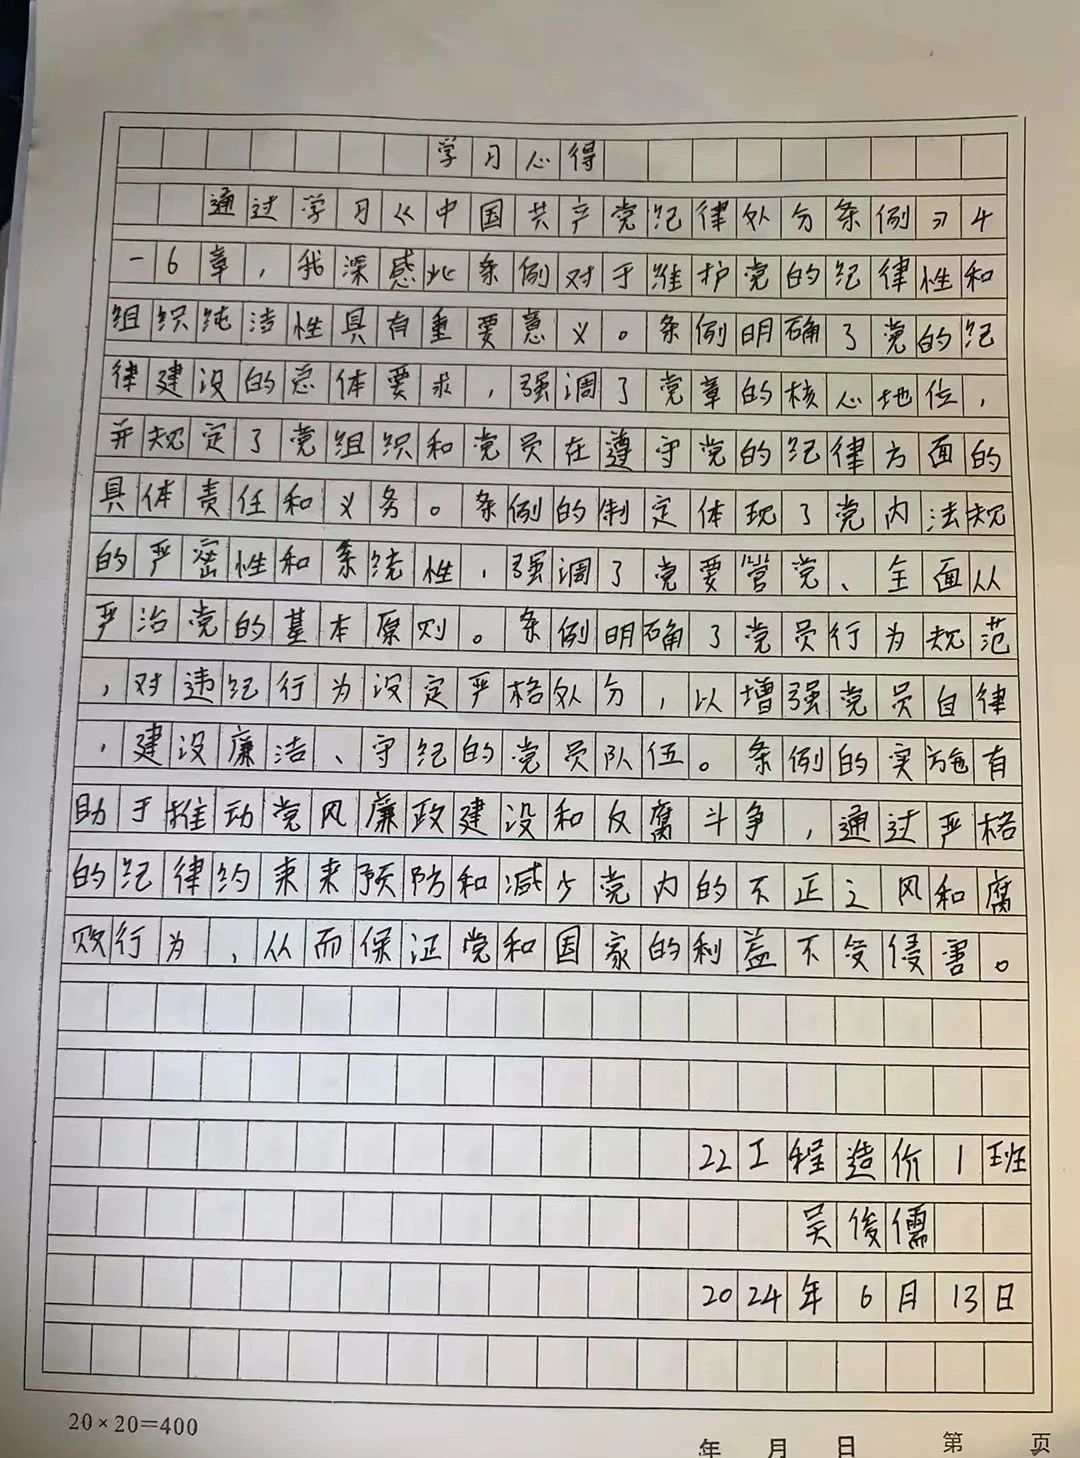 学习心得
通过学习《中国共产党纪律处分条例》4
-6章，我深感此条例对于维护党的纪律性和
组织纯洁性具有重要意义。条例明确了党的纪
律建设的总体要求，强调了党章的核心地位，
并规定了党组织和党员在遵守党的纪律方面的
具体责任和义务。条例的制定体现了党内法规
的严密性和系统性，强调了党要管党、全面从
严治党的基本原则。条例明确了党员行为规范
，对违纪行为设定严格处分，以增强党员自律
，建设廉洁、守纪的党员队伍。条例的实施有
助于推动党风廉政建设和反腐斗争，通过严格
的纪律约束来预防和减少党内的不正之风和腐
败行为，从而保证党和国家的利益不受侵害。
22工程造价1班
吴俊儒
2024年6月13日
20×20=400
年 月 日 第 页